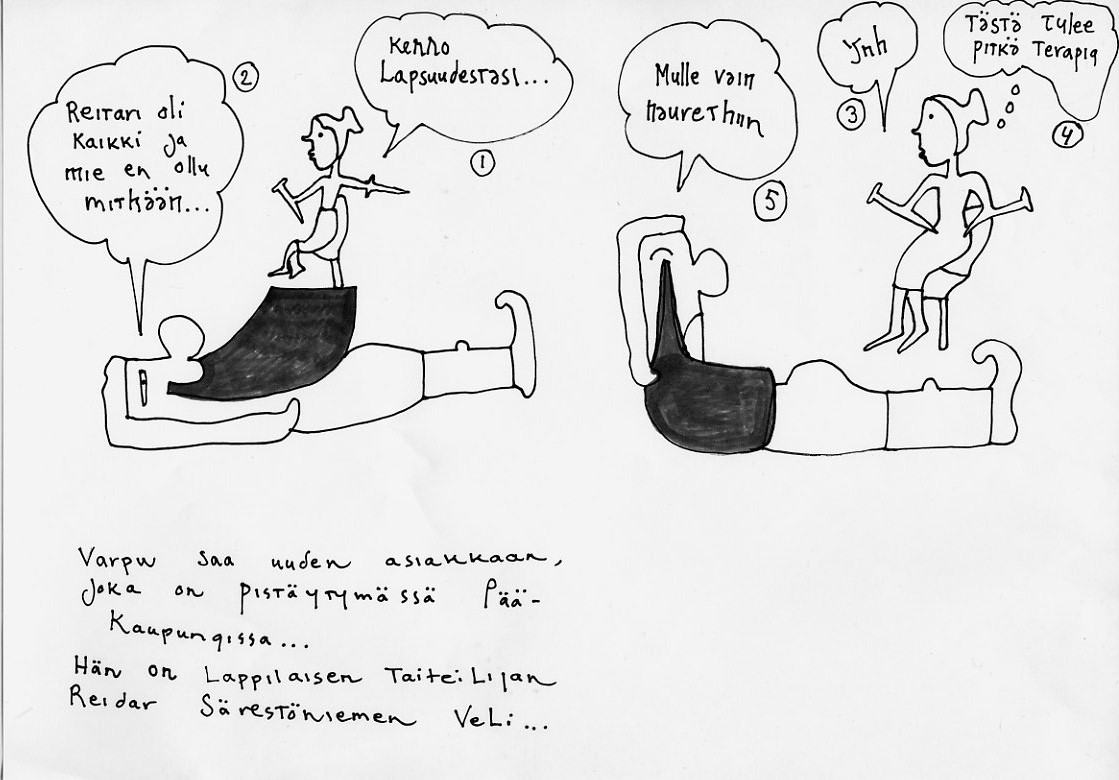 Kerro
Lapsuudestasi...
1
2
Reitari oli
kaikki ja
mie en ollu
mithään...
3
Ynh
4
Tästä Tulee
pitkä Terapia
Mulle vain
naurethiin
5
Varpu saa uuden asiakkaan,
joka on pistäytymässä Pää-
kaupungissa...
Hän on Lappilaisen Taiteilijan
Reidar Särestöniemen Veli...